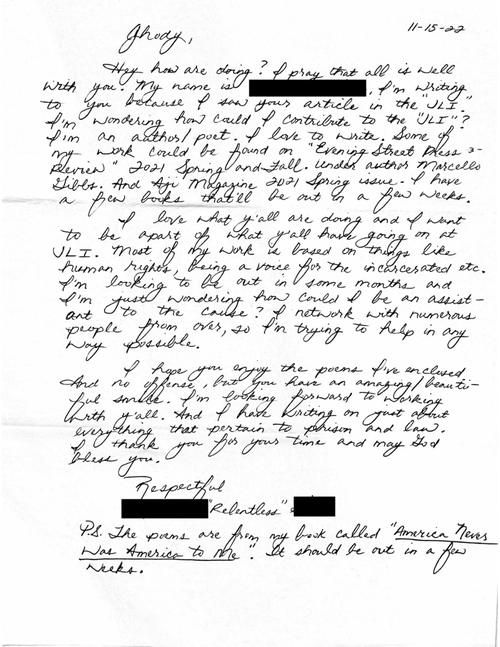 11-15-22
Ghody,
Hey how are doing? I pray that all is well
with you. My name is , I'm writing
to you because I saw your article in the "JLI."
I'm wondering how could I contribute to the "JLI"?
I'm an author/poet. I love to write. Some of
my work could be found on "Evening Street Press &
Review" 2021 Spring and Fall. Under author Marcello
Gibbs. And Aji Magazine 2021 Spring issue. I have
a few books that'll be out in a few weeks.
I love what y'all are doing and I want
to be apart of what y'all have going on at
JLI. Most of my work is based on things like
human rights, being a voice for the incarcerated etc.
I'm looking to be out in some months and
I'm just wondering how could I be an assist-
ant to the cause? I network with numerous
people from over, so I'm trying to help in any
way possible.
I hope you enjoy the poems I've enclosed.
And no offense, but you have an amazing/beauti-
ful smile. I'm looking forward to working
with y'all. And I have writing on just about
everything that pertain to prison and law.
I thank you for your time and may God
bless you.
Respectful
"Relentless"
P.S. The poems are from my book called "America Never
Was America to Me". It should be out in a few
weeks.